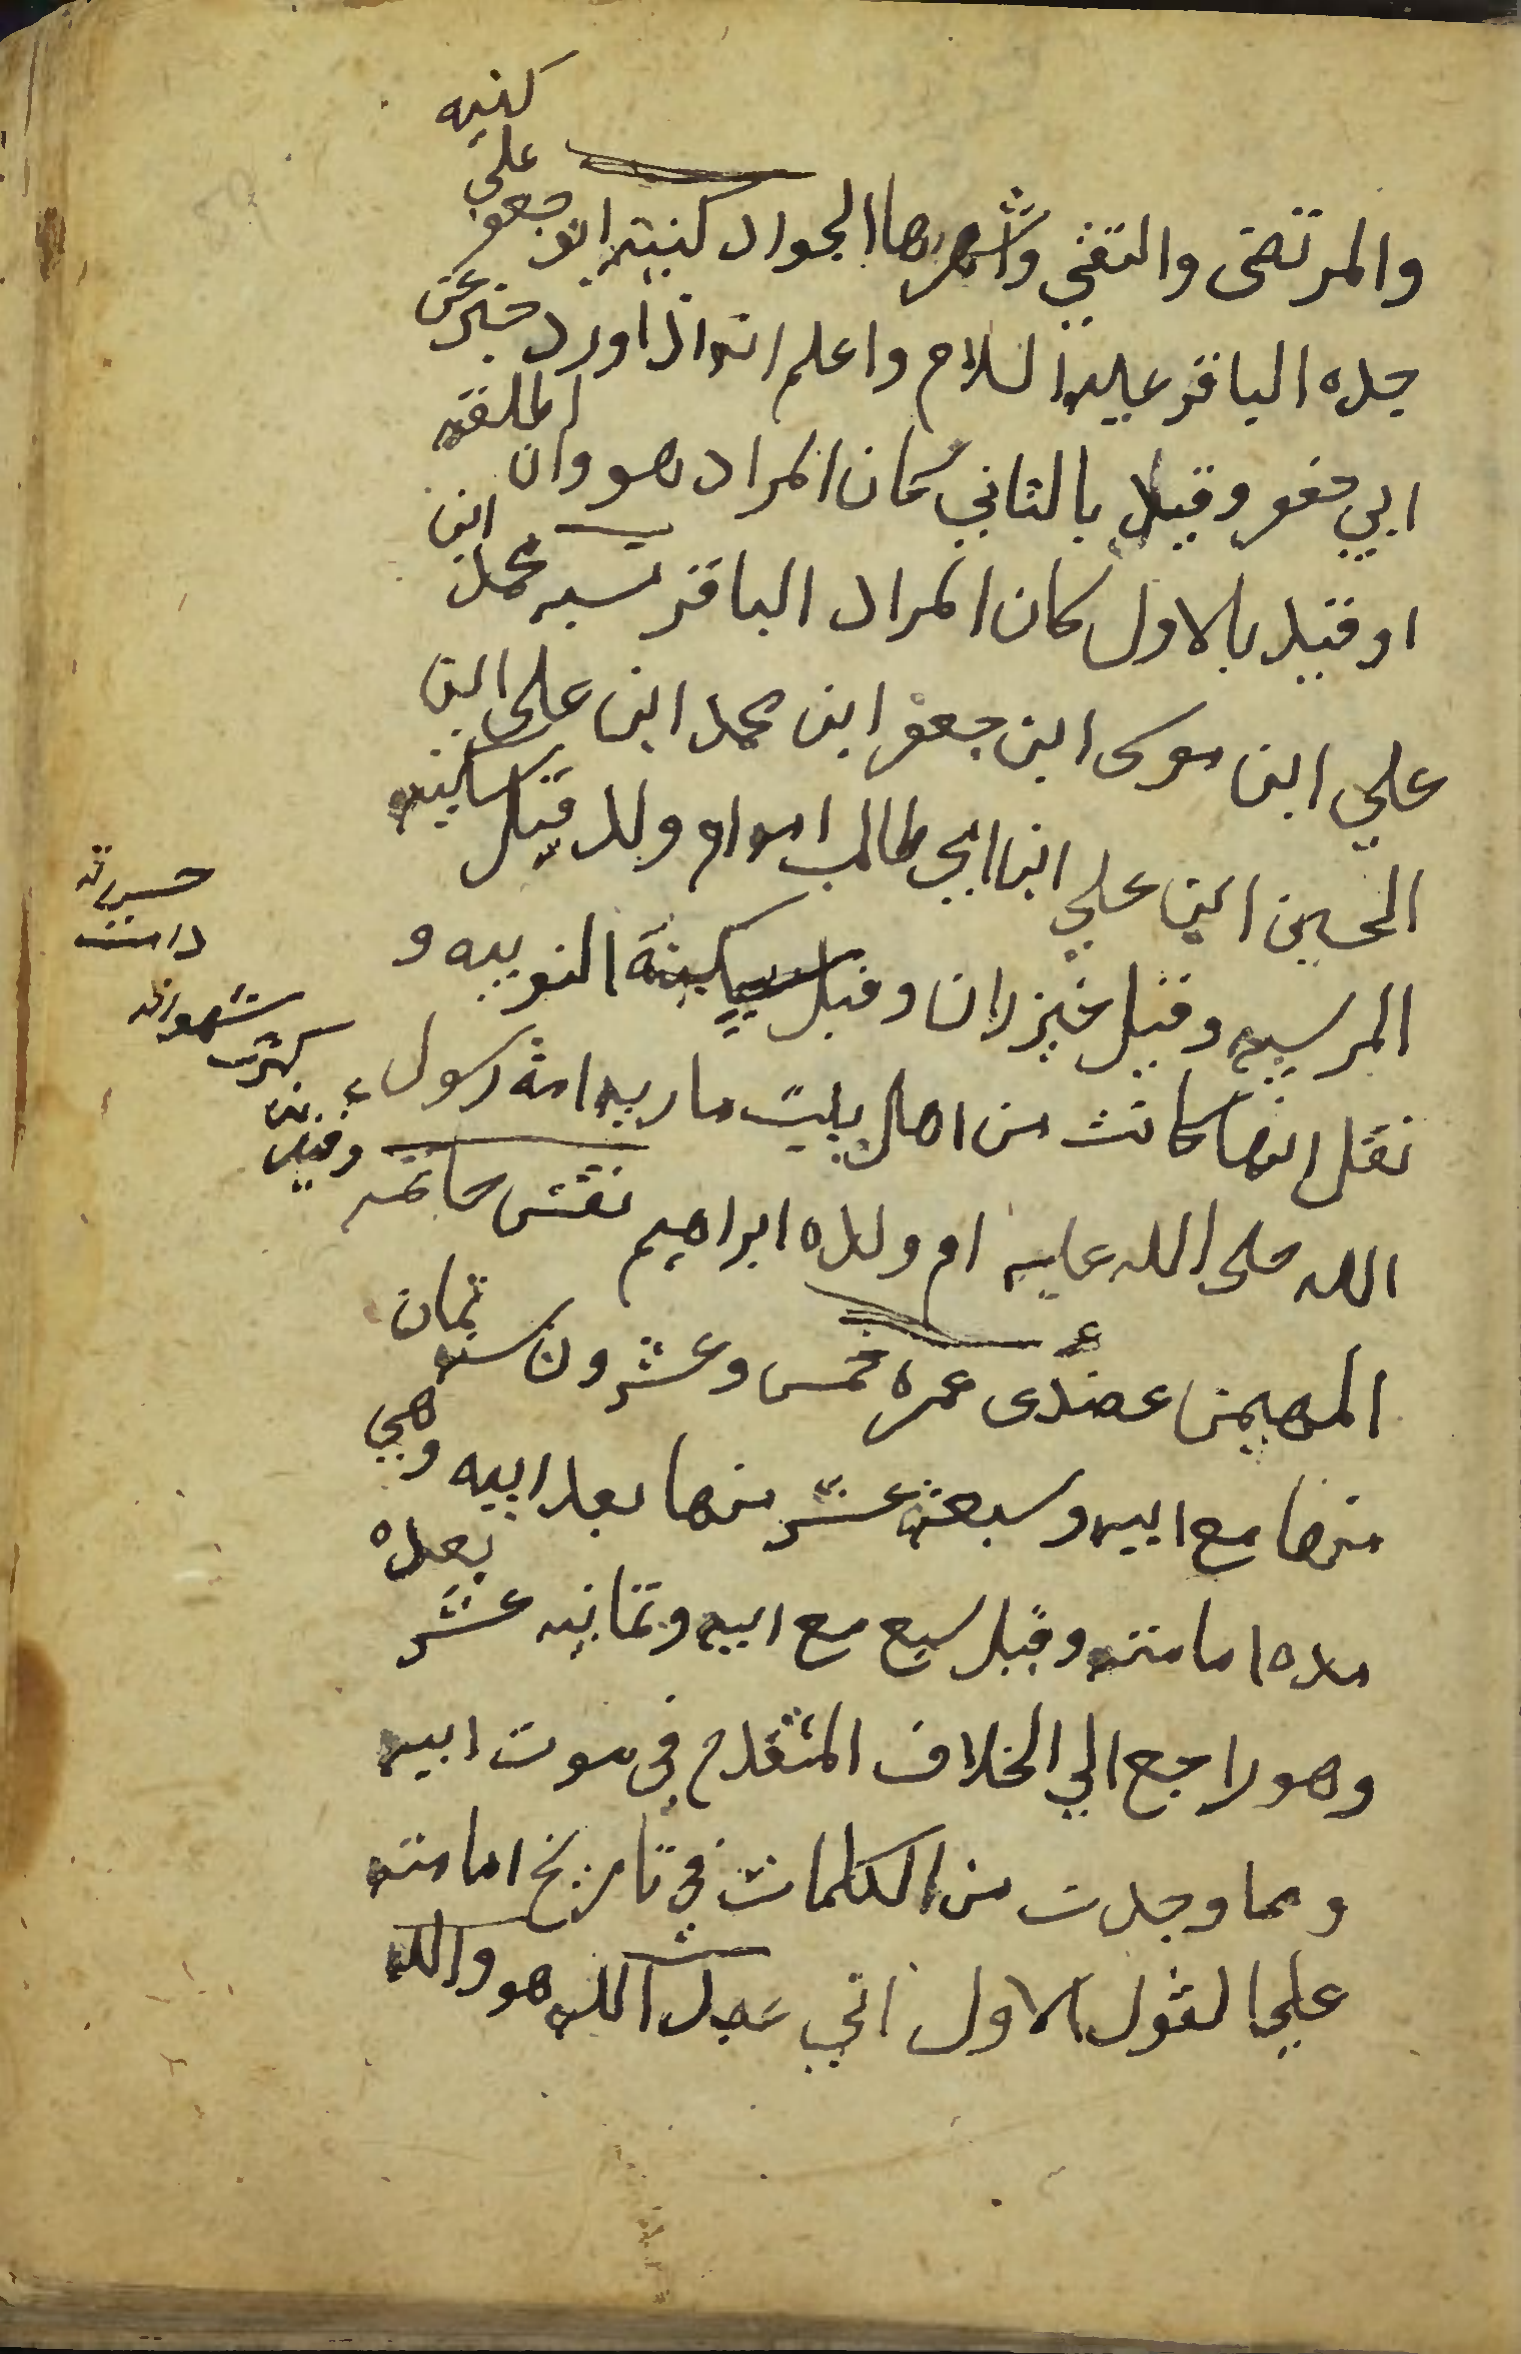 والمرتضى والتقي واشهرها الجواد كنيته ابو جعفر علي كنيه
جده الباقر عليه السلام واعلم انه اذا ورد خبر عن
ابي جعفر وقيد بالثاني كان المراد هو وان اطلقه
او قيد بالاول كان المراد الباقر نسبه محمد ابن
علي ابن موسى ابن جعفر ابن محمد ابن علي ابن
الحسين ابن علي ابن ابي طالب امه ام ولد قيل سكينه
المرسيه وقيل خيزران وقيل سبيكة النوبيه و
نقل انها كانت من اهل بيت ماريه امة رسول
الله صلى الله عليه ام ولده ابراهيم نقش خاتمه
وقيل من كثرت شهواته دامت حسرته
المهيمن عضدى عمره خمس وعشرون سنه ثمان
منها مع ابيه وسبعة عشر منها بعد ابيه وهي
مده امامته وقيل سبع مع ابيه وثمانيه عشر بعده
وهو راجع الي الخلاف المتقدم في موت ابيه
ومما وجدت من الكلمات في تاريخ امامته
علي القول الاول اني عبد الله هو والله